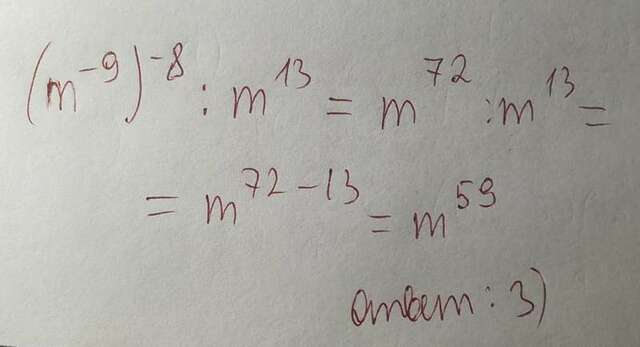 (m⁻⁹)⁻⁸ : m¹³ = m⁷² : m¹³ =
= m⁷²⁻¹³ = m⁵⁹
ответ : 3)